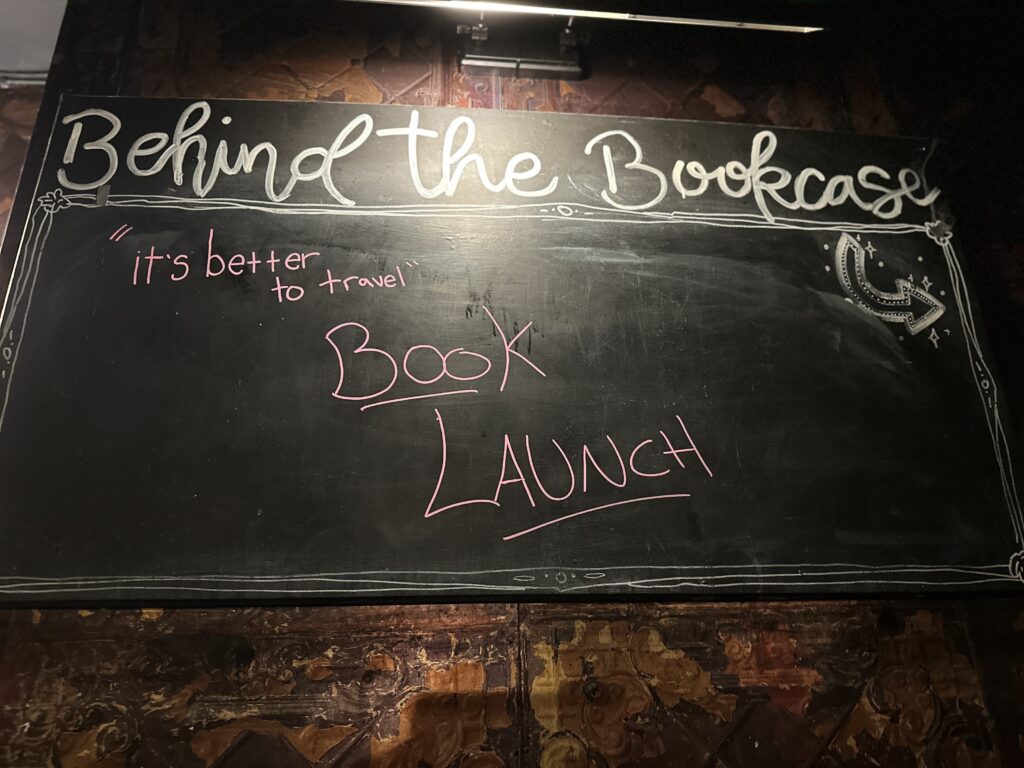 Behind the Bookcase
"it's better
to travel"
BOOK
LAUNCH